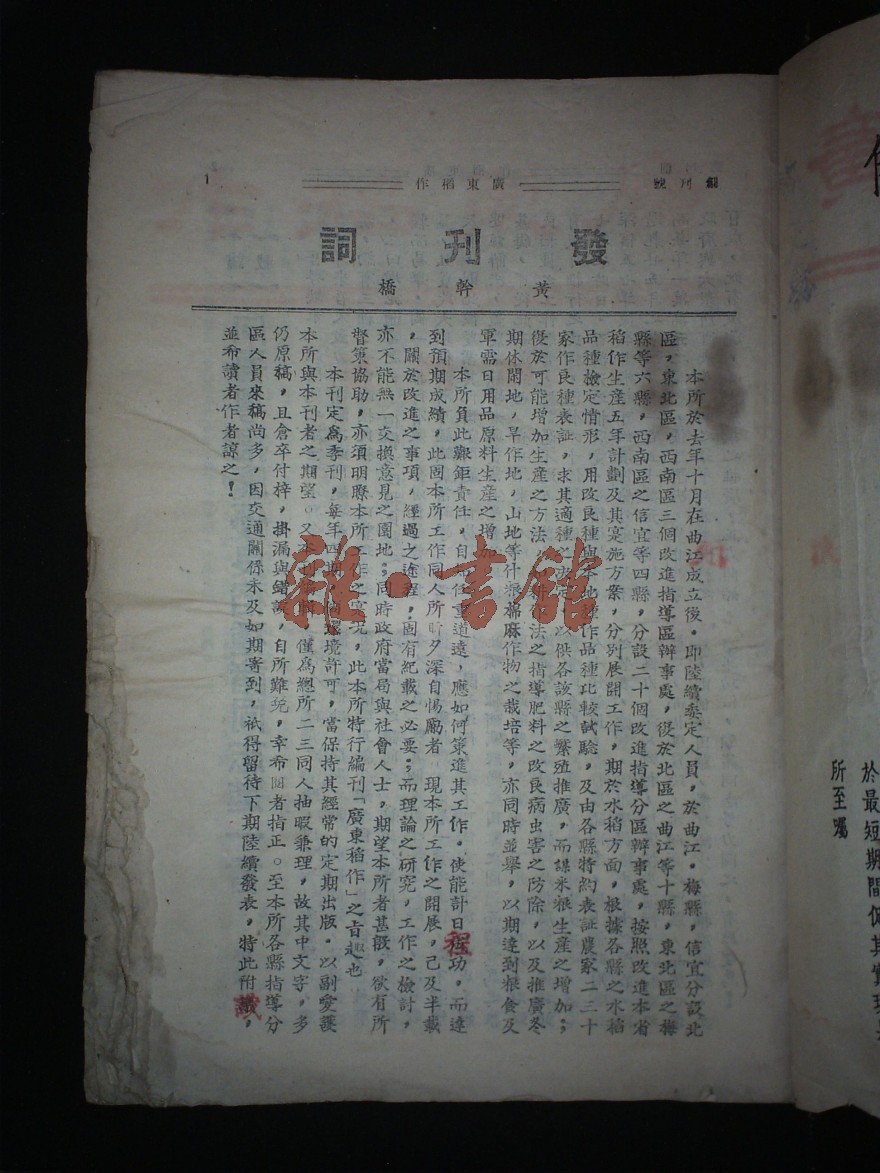 創刊號
廣東稻作
1
發刊詞
黃幹橋
本所於去年十月在曲江成立後,即陸續委定人員,於曲江,梅縣,信宜分設北
區,東北區,西南區三個改進指導區辦事處,復於北區之曲江等十縣,東北區之梅
縣等六縣,西南區之信宜等四縣,分設二十個改進指導分區辦事處,按照改進本省
稻作生產五年計劃及其實施方案,分別展開工作,期於水稻方面,根據各縣之水稻
品種檢定情形,用改良種與本地種作品種比較試驗,及由各縣特約表証農家二三十
家作良種表証,求其適種之決定,以供各該縣之繁殖推廣,而謀米粮生產之增加;
復於可能增加生產之方法,法之指導肥料之改良病虫害之防除,以及推廣冬
期休閒地,旱作地,山地等什粮棉麻作物之栽培等,亦同時並舉,以期達到粮食及
軍需日用品原料生產之增加
本所負此艱鉅責任,自任重道遠,應如何策進其工作,使能計日程功,而達
到預期成績,此固本所工作同人所日夕深自惕勵者 現本所工作之開展,已及半載
,關於改進之事項,經過之途程,固有紀載之必要;而理論之研究,工作之檢討,
亦不能無一交換意見之園地;同時政府當局與社會人士,期望本所者甚殷,欲有所
督策協助,亦須明瞭本所工作之實況,此本所特行編刊「廣東稻作」之旨趣也
本刊定為季刊,每年四期,環境許可,當保持其經常的定期出版,以副愛護
本所與本刊者之期望。又本刊僅為總所二三同人抽暇兼理,故其中文字,多
仍原稿,且倉卒付梓,掛漏與錯誤,自所難免,幸希者指正。至本所各縣指導分
區人員來稿尚多,因交通關係未及如期寄到,祇得留待下期陸續發表,特此附識,
並希讀者作者諒之!
雜·書館
於最短期間促其實現
所至囑